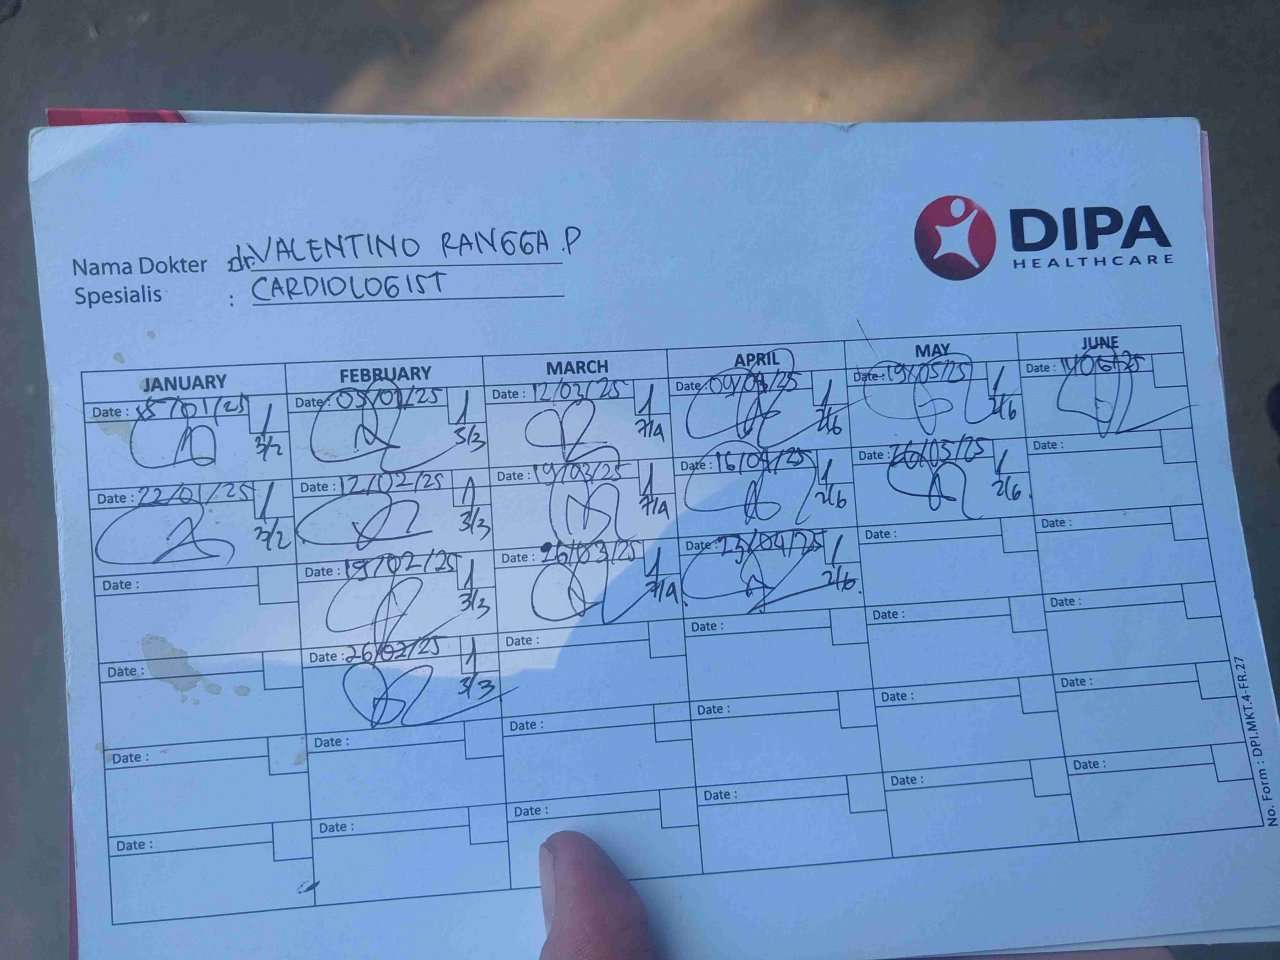 DIPA
HEALTHCARE
Nama Dokter dr. VALENTINO RANGGA .P
Spesialis : CARDIOLOGIST
JANUARY FEBRUARY MARCH APRIL MAY JUNE
Date : 15/01/25 Date : 05/02/25 Date : 12/03/25 Date : 09/04/25 Date : 19/05/25 Date : 11/06/25
3/2 3/3 7/4 2/6 2/6
Date : 22/01/25 Date : 12/02/25 Date : 19/03/25 Date : 16/04/25 Date : 26/05/25 Date :
3/2 3/3 7/4 2/6 2/6
Date : Date : 19/02/25 Date : 26/03/25 Date : 23/04/25 Date : Date :
3/3 7/4 2/6
Date : Date : 26/02/25 Date : Date : Date : Date :
3/3
Date : Date : Date : Date : Date : Date :
Date : Date : Date : Date : Date : Date :
No. Form : DPI.MKT.4-FR.27